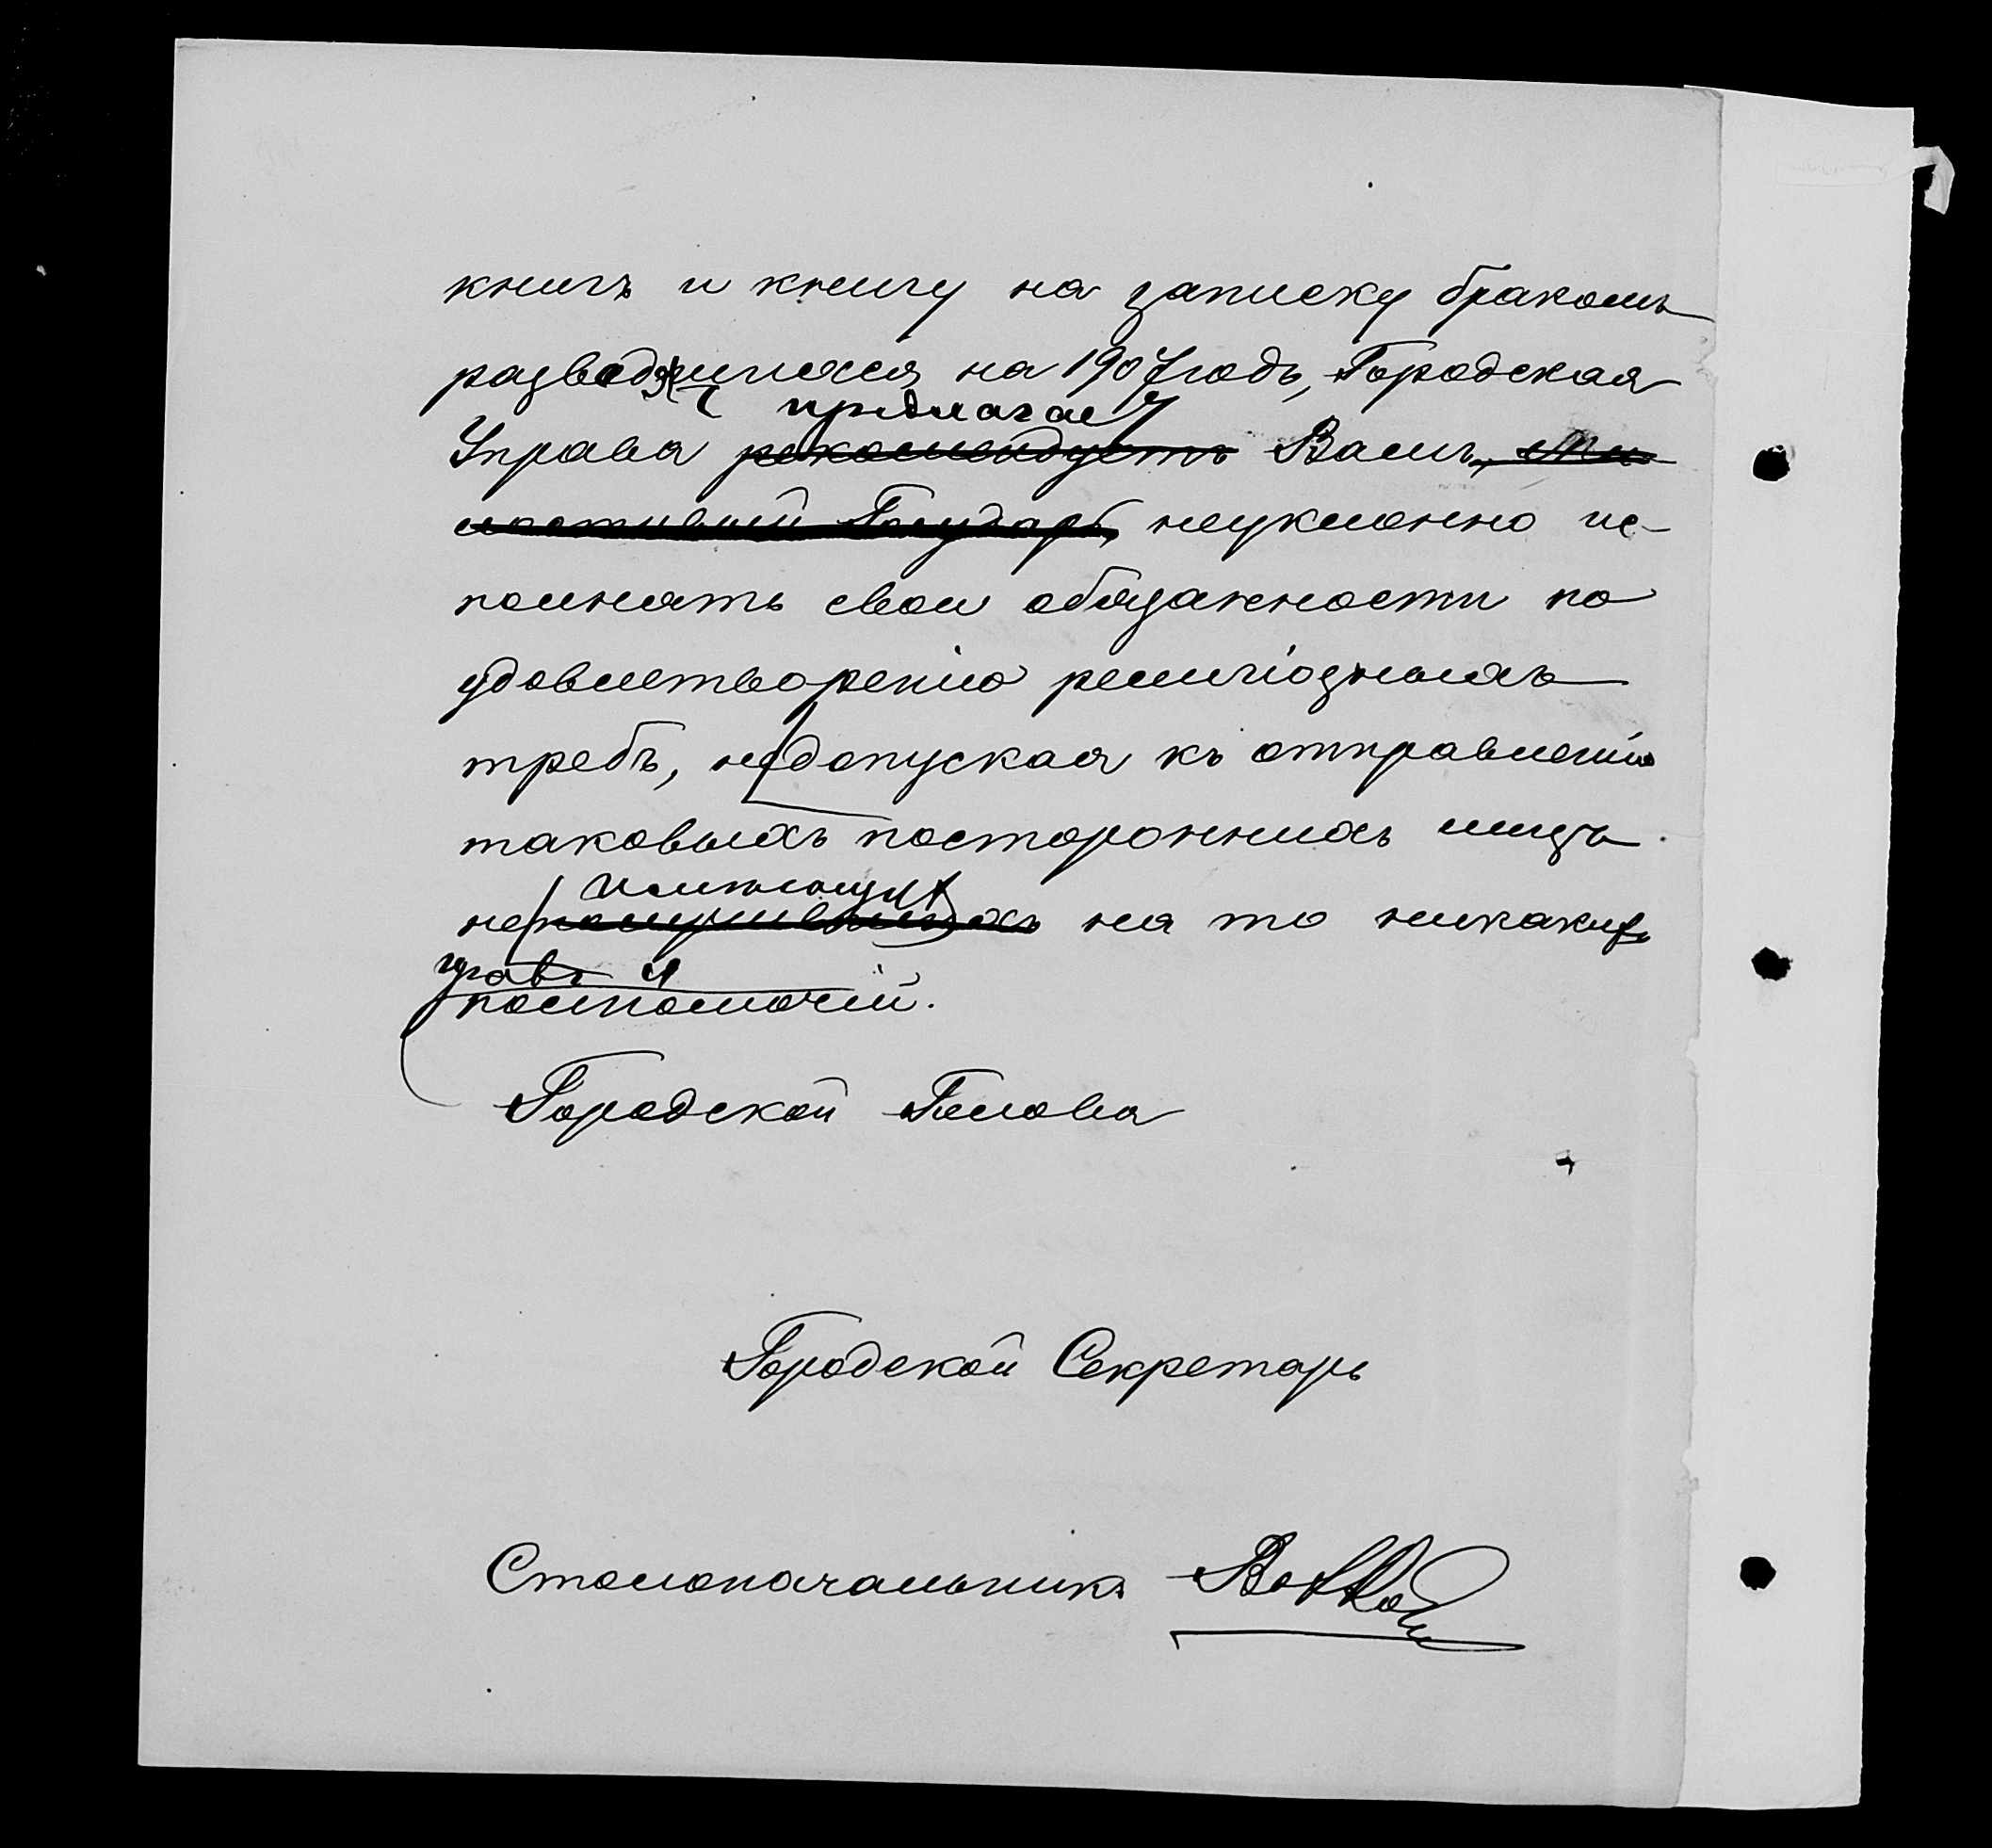 книгъ и книгу на записку бракомъ
разводящихся на 1907 годъ, Городская
предлагает
Управа рекомендуетъ Вамъ, Ми-
лостивый Государь, неуклонно ис-
полнять свои обязанности по
удовлетворенію религіозныхъ
требъ, не допуская къ отправленію
таковыхъ постороннихъ лицъ
имѣющих
не на то никакихъ
правъ и
полномочій.
Городской Голова
Городской Секретарь
Столоначальникъ